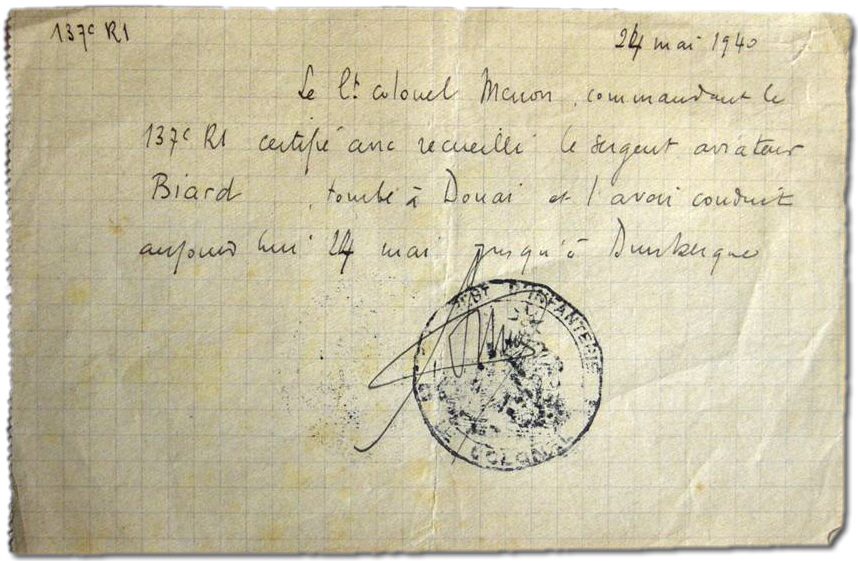 137e RI
24 mai 1940
Le Lt colonel Menon, commandant le
137e RI certifie avoir recueilli le sergent aviateur
Biard, tombé à Douai et l'avoir conduit
aujourd'hui 24 mai jusqu'à Dunkerque
D'INFANTERIE
COLONEL